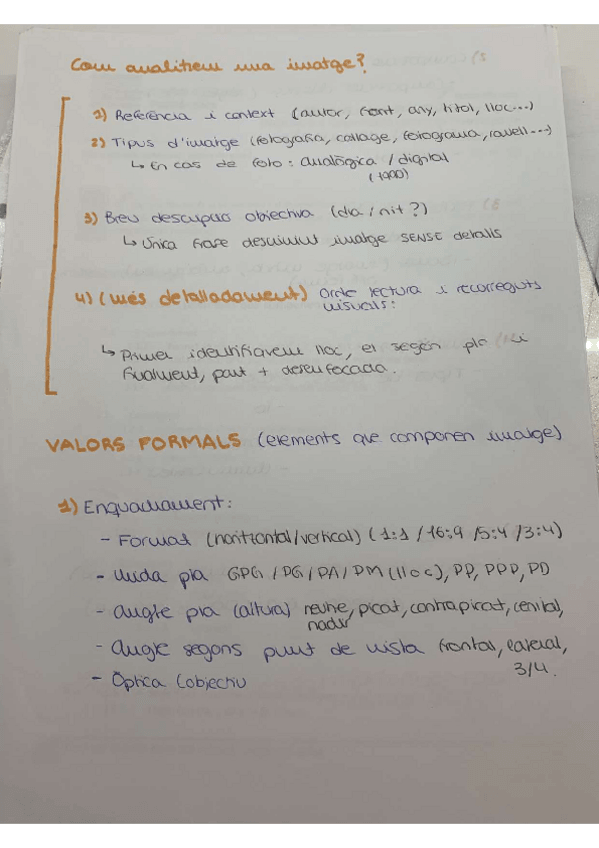 Com analitzem una imatge?
1) Referència i context (autor, font, any, títol, lloc...)
2) Tipus d'imatge (fotografia, collage, fotograma, ...)
↳ En cas de foto: analògica / digital
(1990)
3) Breu descripció objectiva (dia / nit?)
↳ Única frase descrivint imatge SENSE detalls
4) (més detalladament) Ordre lectura i recorreguts
visuals:
↳ Primer identifiquem lloc, el segon pla i
finalment, part + desenfocada.
VALORS FORMALS (elements que componen imatge)
1) Enquadrament:
- Format (horitzontal/vertical) (1:1 / 16:9 / 5:4 / 3:4)
- Mida pla GPG / PG / PA / PM (lloc), PP, PPP, PD
- Angle pla (altura) neutre, picat, contrapicat, cenital,
nadir
- Angle segons punt de vista frontal, lateral,
3/4.
- Òptica (objectiu